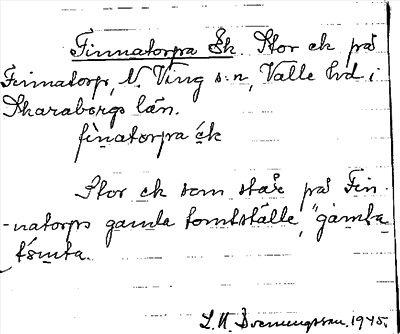 Finnatorpa Ek Stor ek på
Finnatorp, N. Ving s:n, Valle hd i
Skaraborgs län.
finatorpa ék
Stor ek som står på Fin-
-natorps gamla tomtställe, "gamla
tómta
1945.